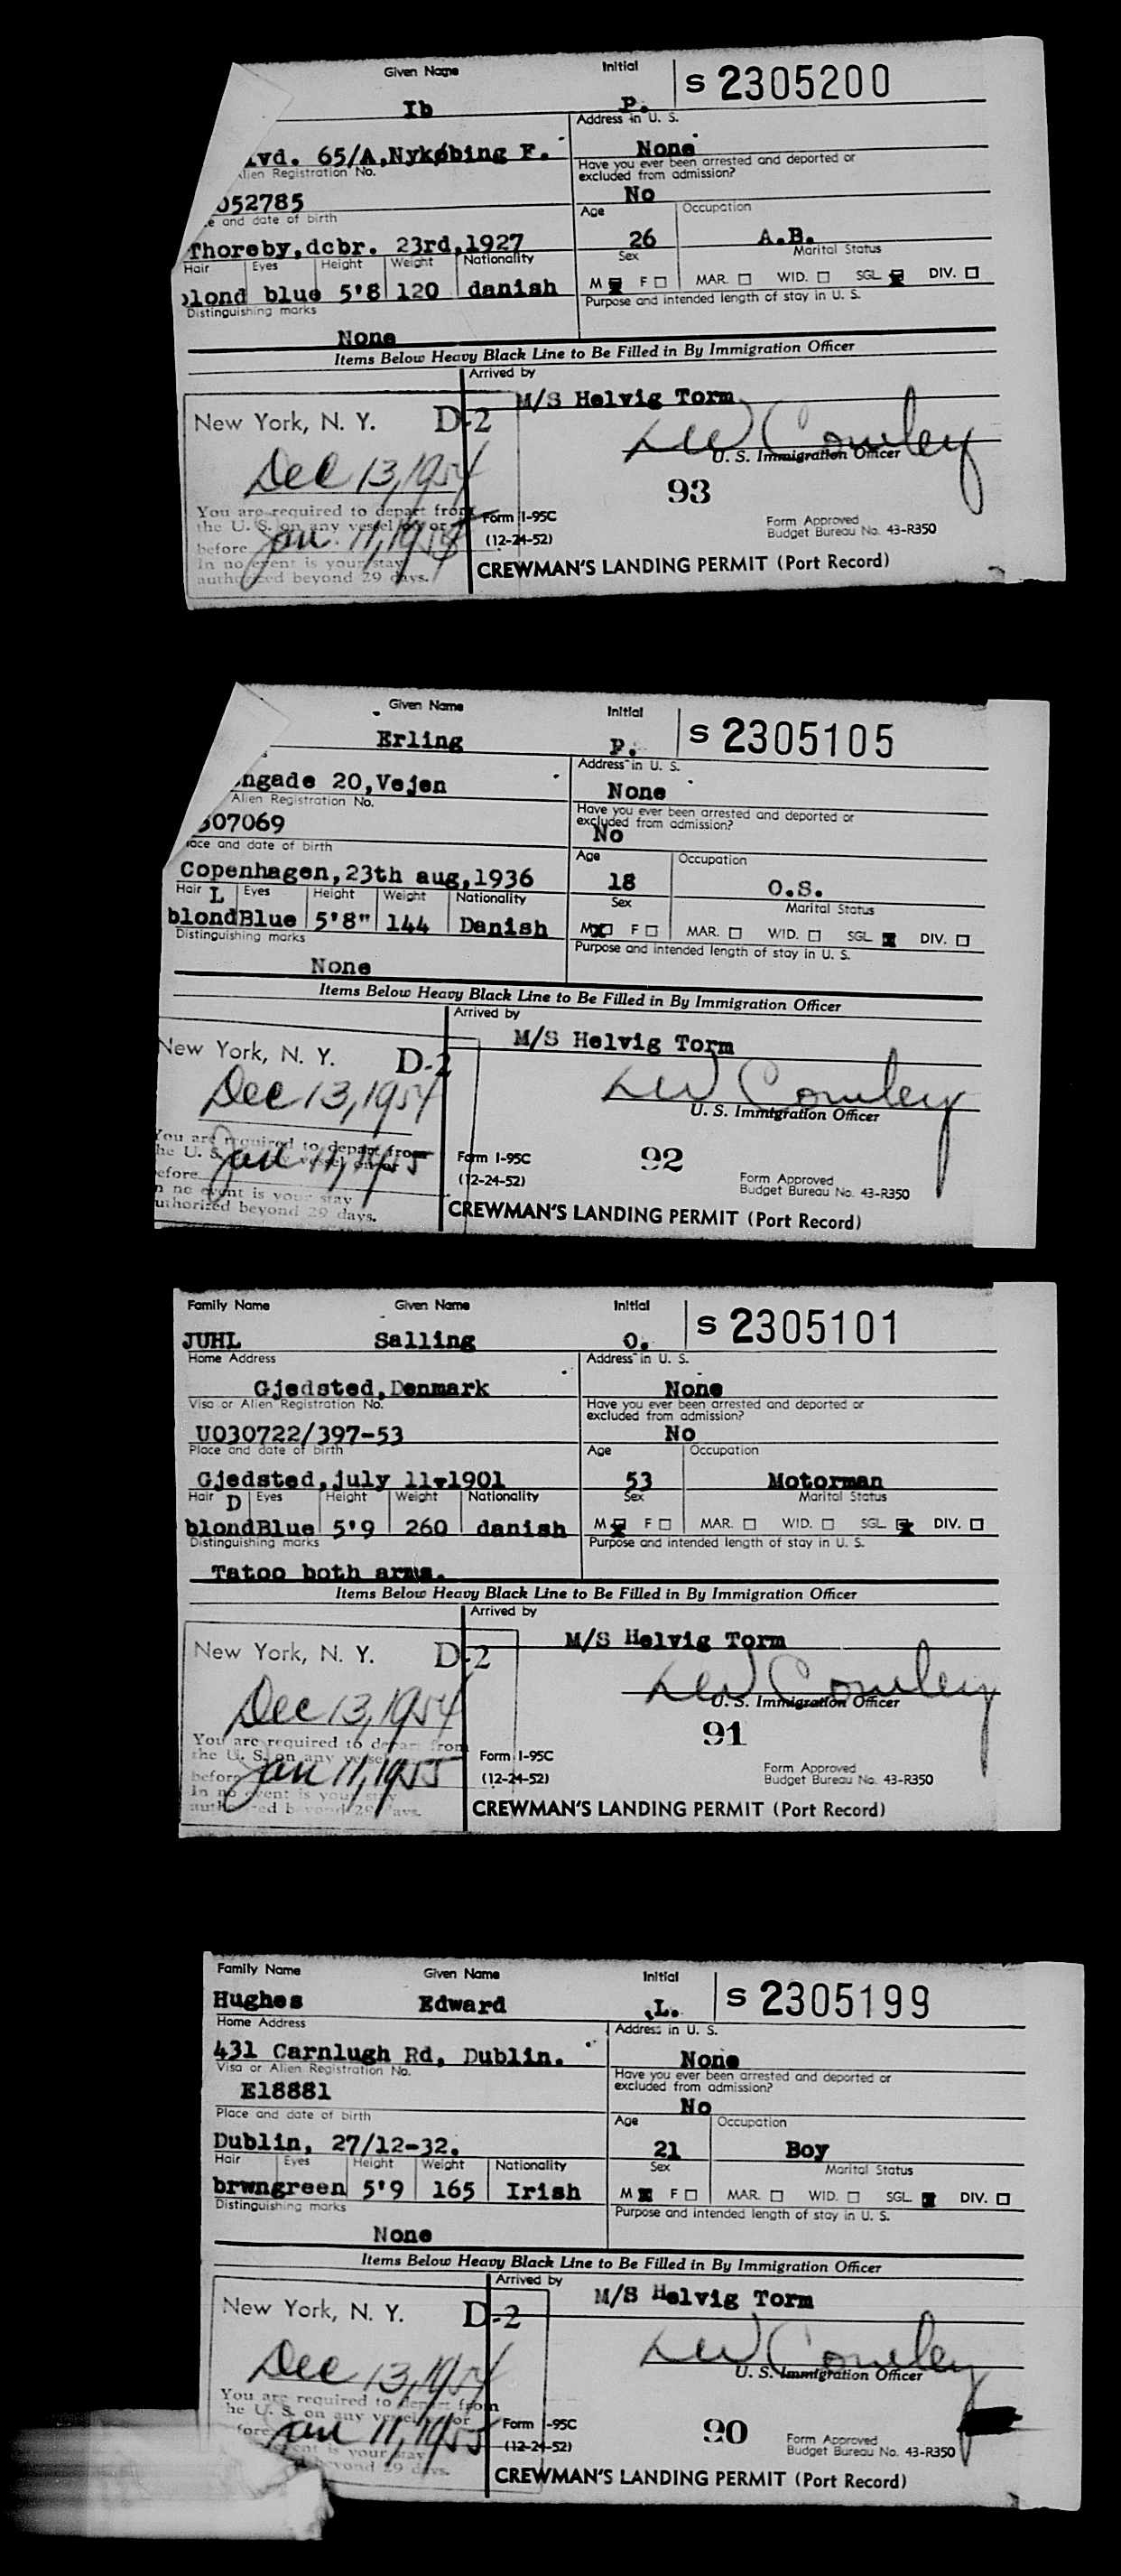 Given Name Initial S 2305200
Ib P.
Address in U. S.
lvd. 65/A,Nykøbing F. None
lien Registration No. Have you ever been arrested and deported or
excluded from admission?
052785 No
e and date of birth Age Occupation
Thoreby,dcbr. 23rd,1927 26 A.B.
Hair Eyes Height Weight Nationality Sex Marital Status
lond blue 5'8 120 danish M F MAR. WID. SGL. DIV.
Distinguishing marks Purpose and intended length of stay in U. S.
None
Items Below Heavy Black Line to Be Filled in By Immigration Officer
Arrived by
M/S Helvig Torm
New York, N. Y. D-2
LW Cowley
U. S. Immigration Officer
Dec 13, 1954
93
You are required to depart from
the U. S. on any vessel on or
before Jan. 11, 1955
In no event is your stay
authorized beyond 29 days.
Form I-95C Form Approved
(12-24-52) Budget Bureau No. 43-R350
CREWMAN'S LANDING PERMIT (Port Record)
Given Name Initial S 2305105
Erling P.
Address in U. S.
ngade 20,Vejen None
Alien Registration No. Have you ever been arrested and deported or
excluded from admission?
507069 No
ace and date of birth Age Occupation
Copenhagen,23th aug,1936 18 O.S.
Hair L Eyes Height Weight Nationality Sex Marital Status
blond Blue 5'8" 144 Danish M F MAR. WID. SGL. DIV.
Distinguishing marks Purpose and intended length of stay in U. S.
None
Items Below Heavy Black Line to Be Filled in By Immigration Officer
Arrived by
M/S Helvig Torm
New York, N. Y. D-2
LW Cowley
U. S. Immigration Officer
Dec 13, 1954
92
You are required to depart from
he U. S. on any vessel on or
efore Jan 11, 1955
n no event is your stay
uthorized beyond 29 days.
Form I-95C Form Approved
(12-24-52) Budget Bureau No. 43-R350
CREWMAN'S LANDING PERMIT (Port Record)
Family Name Given Name Initial S 2305101
JUHL Salling O.
Home Address Address in U. S.
Gjedsted,Denmark None
Visa or Alien Registration No. Have you ever been arrested and deported or
excluded from admission?
U030722/397-53 No
Place and date of birth Age Occupation
Gjedsted,july 11-1901 53 Motorman
Hair D Eyes Height Weight Nationality Sex Marital Status
blond Blue 5'9 260 danish M F MAR. WID. SGL. DIV.
Distinguishing marks Purpose and intended length of stay in U. S.
Tatoo both arms.
Items Below Heavy Black Line to Be Filled in By Immigration Officer
Arrived by
M/S Helvig Torm
New York, N. Y. D-2
LW Cowley
U. S. Immigration Officer
Dec 13, 1954
91
You are required to depart from
the U. S. on any vessel
before Jan 11, 1955
In no event is your stay
authorized beyond 29 days.
Form I-95C Form Approved
(12-24-52) Budget Bureau No. 43-R350
CREWMAN'S LANDING PERMIT (Port Record)
Family Name Given Name Initial S 2305199
Hughes Edward L.
Home Address Address in U. S.
431 Carnlugh Rd, Dublin. None
Visa or Alien Registration No. Have you ever been arrested and deported or
excluded from admission?
E18881 No
Place and date of birth Age Occupation
Dublin, 27/12-32. 21 Boy
Hair Eyes Height Weight Nationality Sex Marital Status
brwn green 5'9 165 Irish M F MAR. WID. SGL. DIV.
Distinguishing marks Purpose and intended length of stay in U. S.
None
Items Below Heavy Black Line to Be Filled in By Immigration Officer
Arrived by
M/S Helvig Torm
New York, N. Y. D-2
LW Cowley
U. S. Immigration Officer
Dec 13, 1954
90
You are required to depart from
he U. S. on any vessel or
fore Jan 11, 1955
ent is your stay
eyond 29 days.
Form I-95C Form Approved
(12-24-52) Budget Bureau No. 43-R350
CREWMAN'S LANDING PERMIT (Port Record)